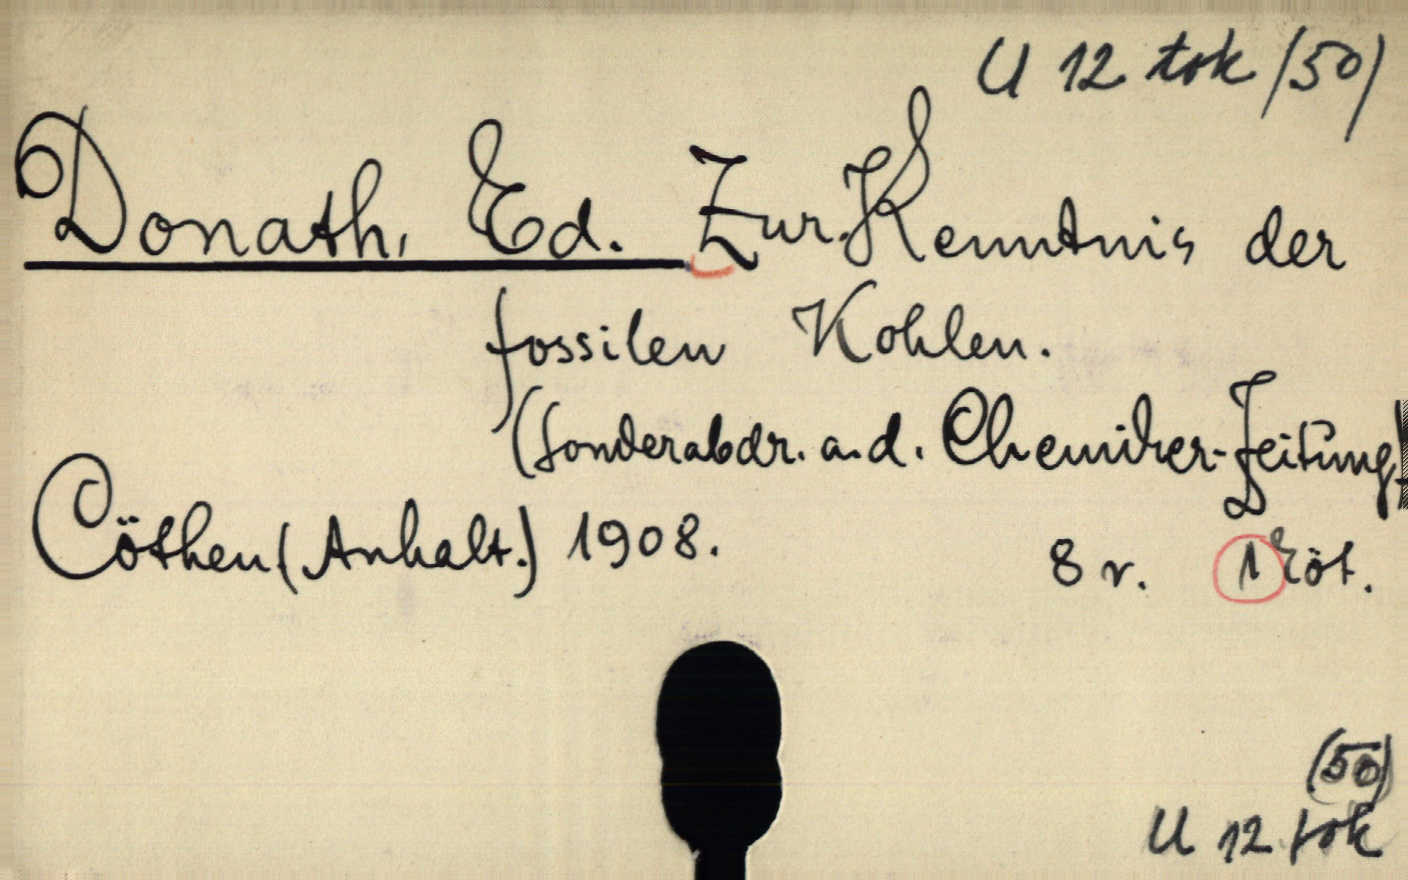 U 12 tok (50)
Donath, Ed. Zur Kenntnis der
fossilen Kohlen.
(Sonderabdr. a. d. Chemiker-Zeitung)
Cöthen (Anhalt.) 1908.
8 r. 1 köt.
(50)
U 12 tok